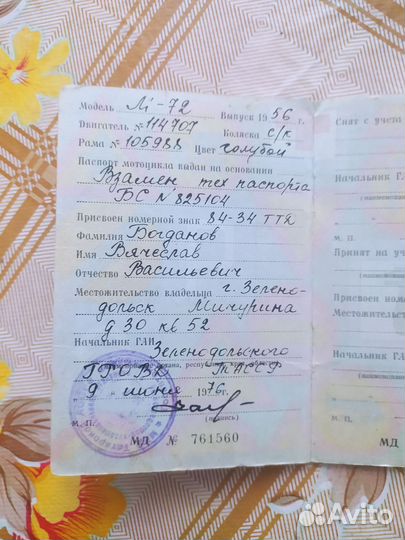 Модель М-72 Выпуск 1956 г.
Двигатель № 114707 Коляска с/к
Рама № 105988 Цвет голубой
Паспорт мотоцикла выдан на основании
Взамен тех паспорта
БС N 825104
Присвоен номерной знак 84-34 ТТЯ
Фамилия Богданов
Имя Вячеслав
Отчество Васильевич
Местожительство владельца г. Зелено-
дольск Мичурина
д 30 кв 52
Начальник ГАИ Зеленодольского
ГРОВД ТАССР
9 июня 1976 г.
(подпись)
М. П.
МД № 761560
Снят с учета
Начальник ГА
М. П.
Принят на уч
Начальник Г
МД
Avito